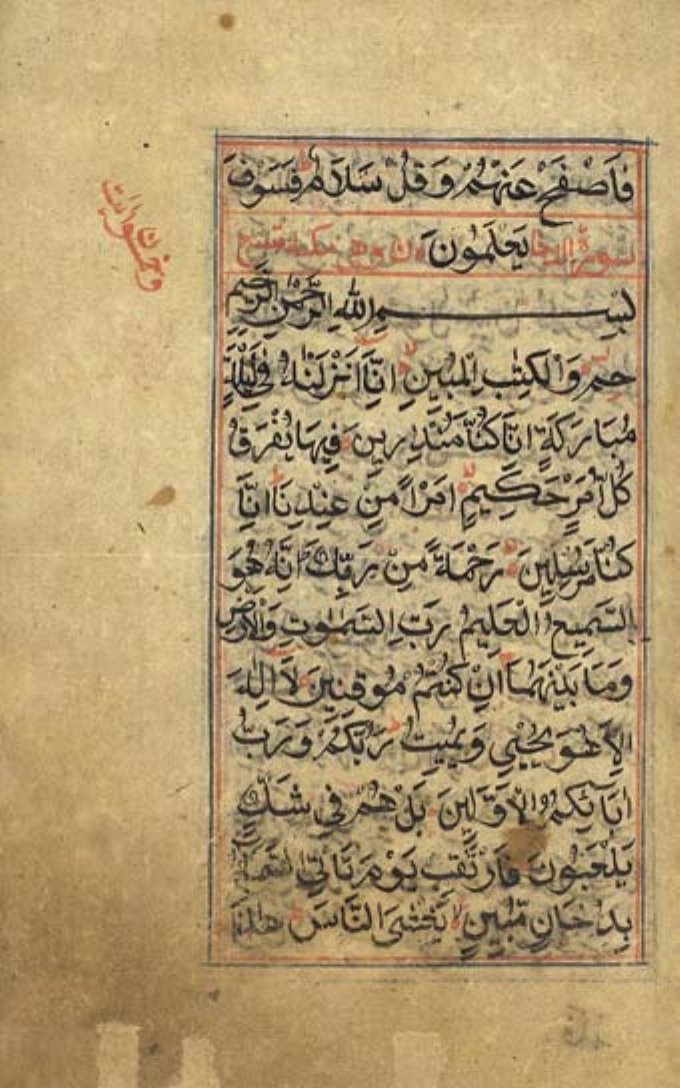 فَاصْفَحْ عَنْهُمْ وَقُلْ سَلَامٌ فَسَوْفَ
يَعْلَمُونَ سورة الدخان
بِسْمِ اللهِ الرَّحْمٰنِ الرَّحِيمِ
حم وَالْكِتٰبِ الْمُبِينِ اِنَّا اَنْزَلْنٰهُ فِي لَيْلَةٍ
مُبَارَكَةٍ اِنَّا كُنَّا مُنْذِرِينَ فِيهَا يُفْرَقُ
كُلُّ اَمْرٍ حَكِيمٍ اَمْرًا مِنْ عِنْدِنَا اِنَّا
كُنَّا مُرْسِلِينَ رَحْمَةً مِنْ رَبِّكَ اِنَّهُ هُوَ
السَّمِيعُ الْعَلِيمُ رَبِّ السَّمٰوٰتِ وَالْاَرْضِ
وَمَا بَيْنَهُمَا اِنْ كُنْتُمْ مُوقِنِينَ لَا اِلٰهَ
اِلَّا هُوَ يُحْيِي وَيُمِيتُ رَبُّكُمْ وَرَبُّ
اٰبَائِكُمُ الْاَوَّلِينَ بَلْ هُمْ فِي شَكٍّ
يَلْعَبُونَ فَارْتَقِبْ يَوْمَ تَاْتِي السَّمَاءُ
بِدُخَانٍ مُبِينٍ يَغْشَى النَّاسَ هٰذَا